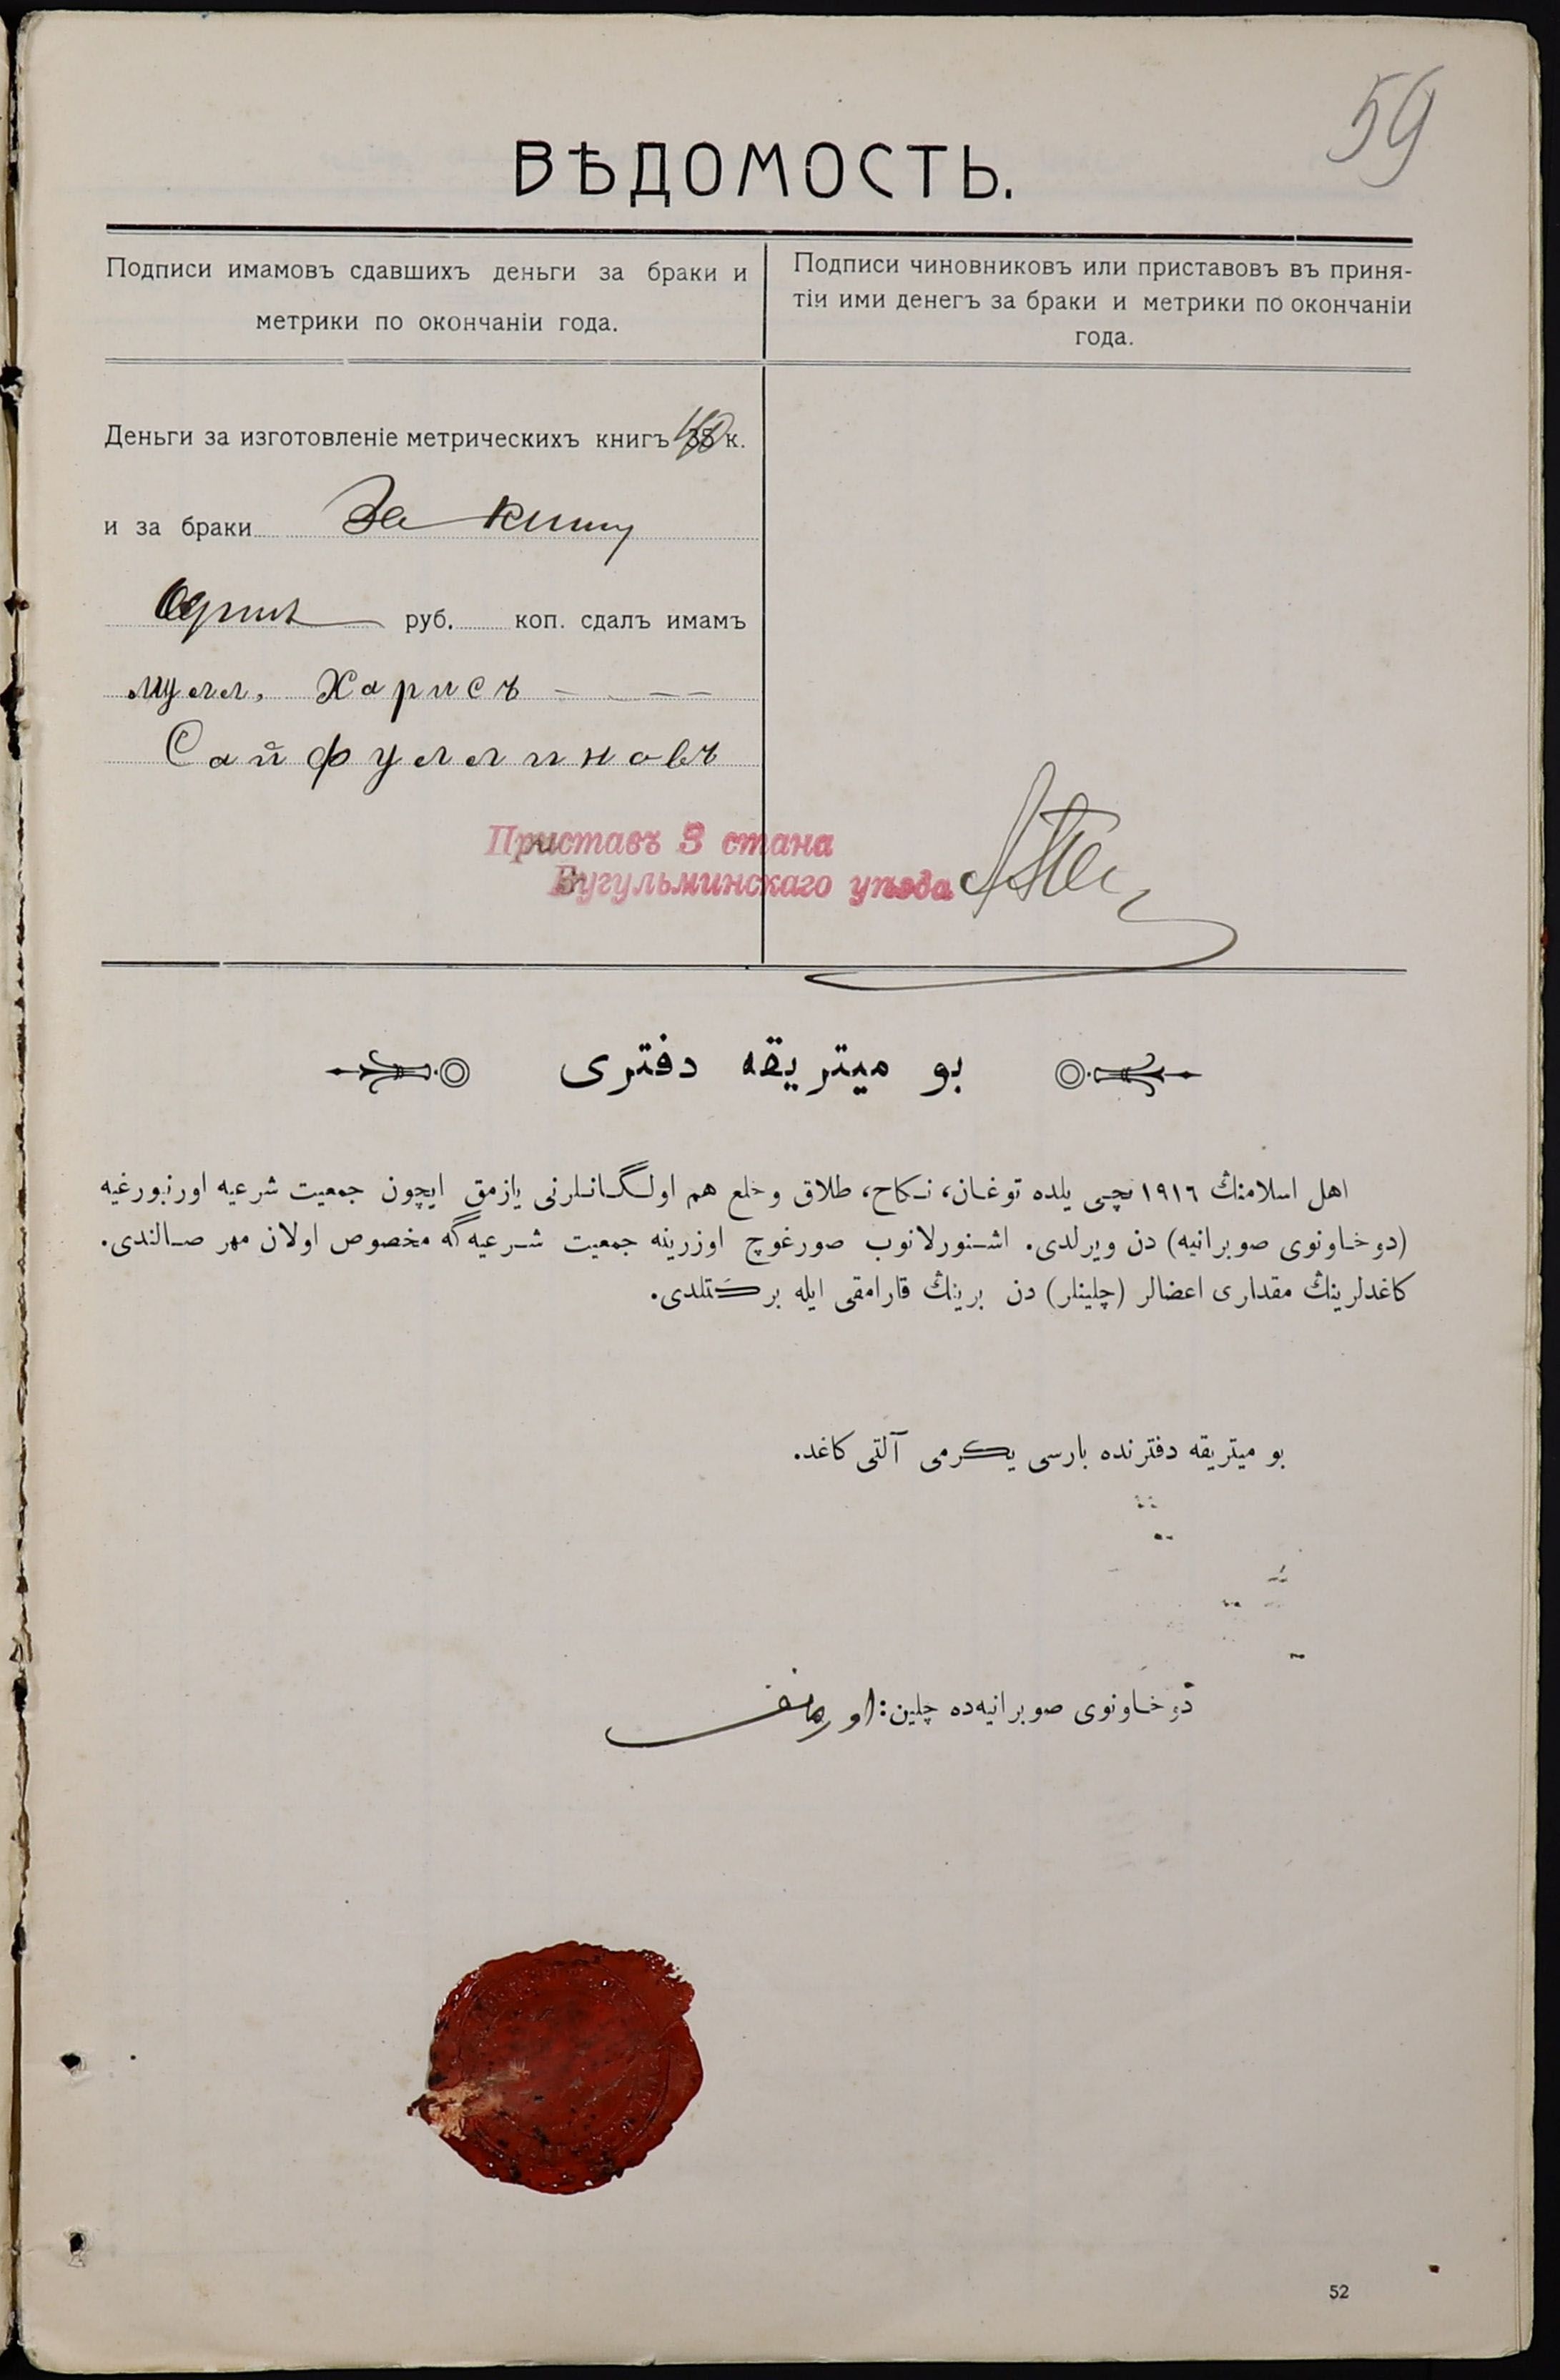 59
ВѢДОМОСТЬ.
Подписи имамовъ сдавшихъ деньги за браки и
метрики по окончаніи года.
Подписи чиновниковъ или приставовъ въ приня-
тіи ими денегъ за браки и метрики по окончаніи
года.
Деньги за изготовленіе метрическихъ книгъ 35 40 к.
и за браки За книгу
Один руб. коп. сдалъ имамъ
мулл. Харисъ
Сайфуллиновъ
Приставъ 3 стана
Бугульминскаго уѣзда
بو ميتريقه دفتری
اهل اسلامنڭ ١٩١٦ نچی يلده توغان، نكاح، طلاق وخلع هم اولگانلرنی يازمق ايچون جمعيت شرعيه اورنبورغيه
(دوخاونوی صوبرانيه) دن ويرلدی. اشنورلانوب صورغوچ اوزرينه جمعيت شرعيه گه مخصوص اولان مهر صالندی.
كاغدلرينڭ مقداری اعضالر (چلينلر) دن برينڭ قارامقی ايله بركتلدی.
بو ميتريقه دفترنده بارسی يكرمی آلتی كاغد.
دوخاونوی صوبرانيه‌ده چلين:
52